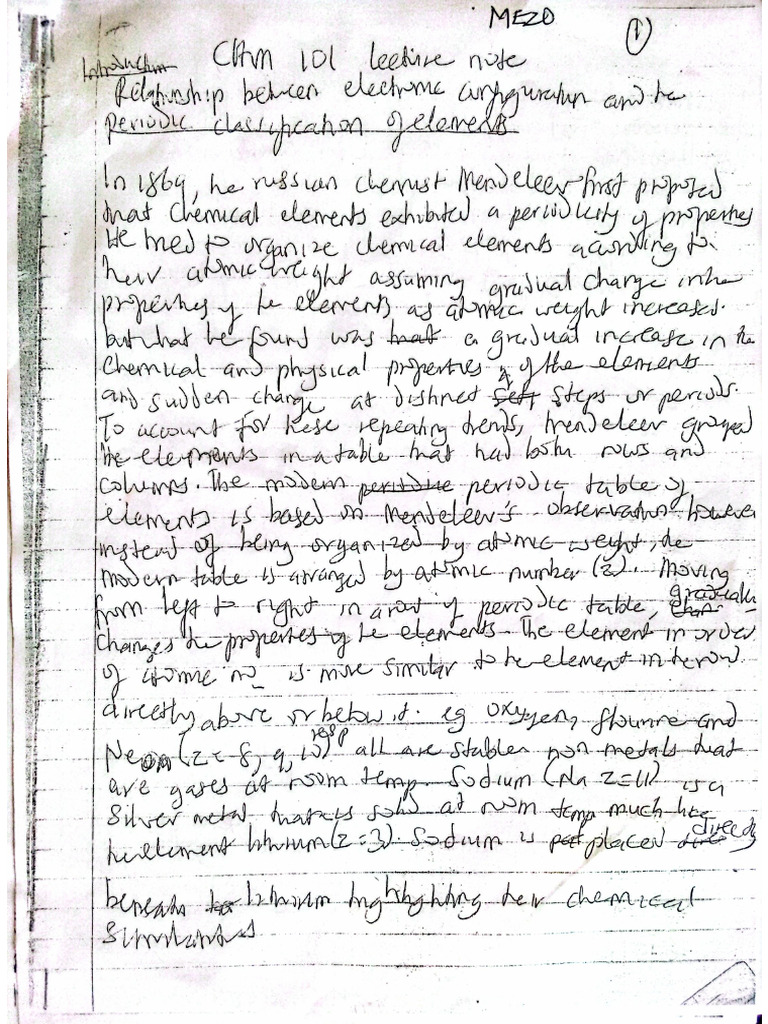 MEZO
1
Introduction CHM 101 lecture note
Relationship between electronic configuration and the
periodic classification of elements
In 1869, the russian chemist Mendeleev first proposed
that chemical elements exhibited a periodicity of properties
He tried to organize chemical elements according to
their atomic weight assuming gradual change in the
properties of the elements as atomic weight increases.
but what he found was that a gradual increase in the
chemical and physical properties of the elements
and sudden change at distinct steps or periods.
To account for these repeating trends, Mendeleev grouped
the elements in a table that had both rows and
columns. The modern periodic periodic table of
elements is based on Mendeleev's observation however
instead of being organized by atomic weight, the
modern table is arranged by atomic number (z). Moving
from left to right in a row of periodic table, gradually
changes the properties of the elements. The element in order
of atomic no is more similar to the element in the row
directly above or below it. eg oxygen, flourine and
Neon (z = 8, 9, 10) resp all are stable non metals that
are gases at room temp. Sodium (Na z=11) is a
silver metal that is solid at room temp much like
the element lithium (z=3). Sodium is placed directly
beneath lithium highlighting their chemical
similarities